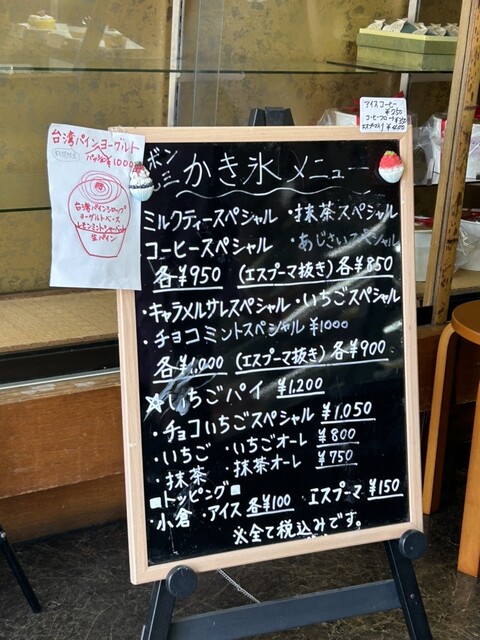 台湾パインヨーグルト
¥1000
台湾パインシロップ
ヨーグルトベース
生パイン
アイスコーヒー
¥750
¥400
ボン
かき氷メニュー
ミルクティースペシャル ・抹茶スペシャル
コーヒースペシャル ・あじさいスペシャル
各¥950 (エスプーマ抜き) 各¥850
・キャラメルサレスペシャル ・いちごスペシャル
・チョコミントスペシャル ¥1000
各¥1,000 (エスプーマ抜き) 各¥900
☆いちごパイ ¥1,200
・チョコいちごスペシャル ¥1,050
・いちご ・いちごオーレ ¥800
・抹茶 ・抹茶オーレ ¥750
■トッピング■
・小倉 ・アイス 各¥100 ・エスプーマ ¥150
※全て税込みです。